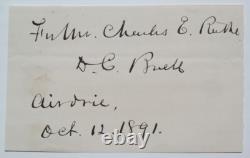 For Mr. Charles E. Ruthe
D. C. Buell
Airdrie,
Oct. 12, 1891.